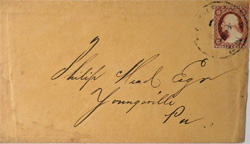 Philip Neal Esqr
Youngsville
Pa.